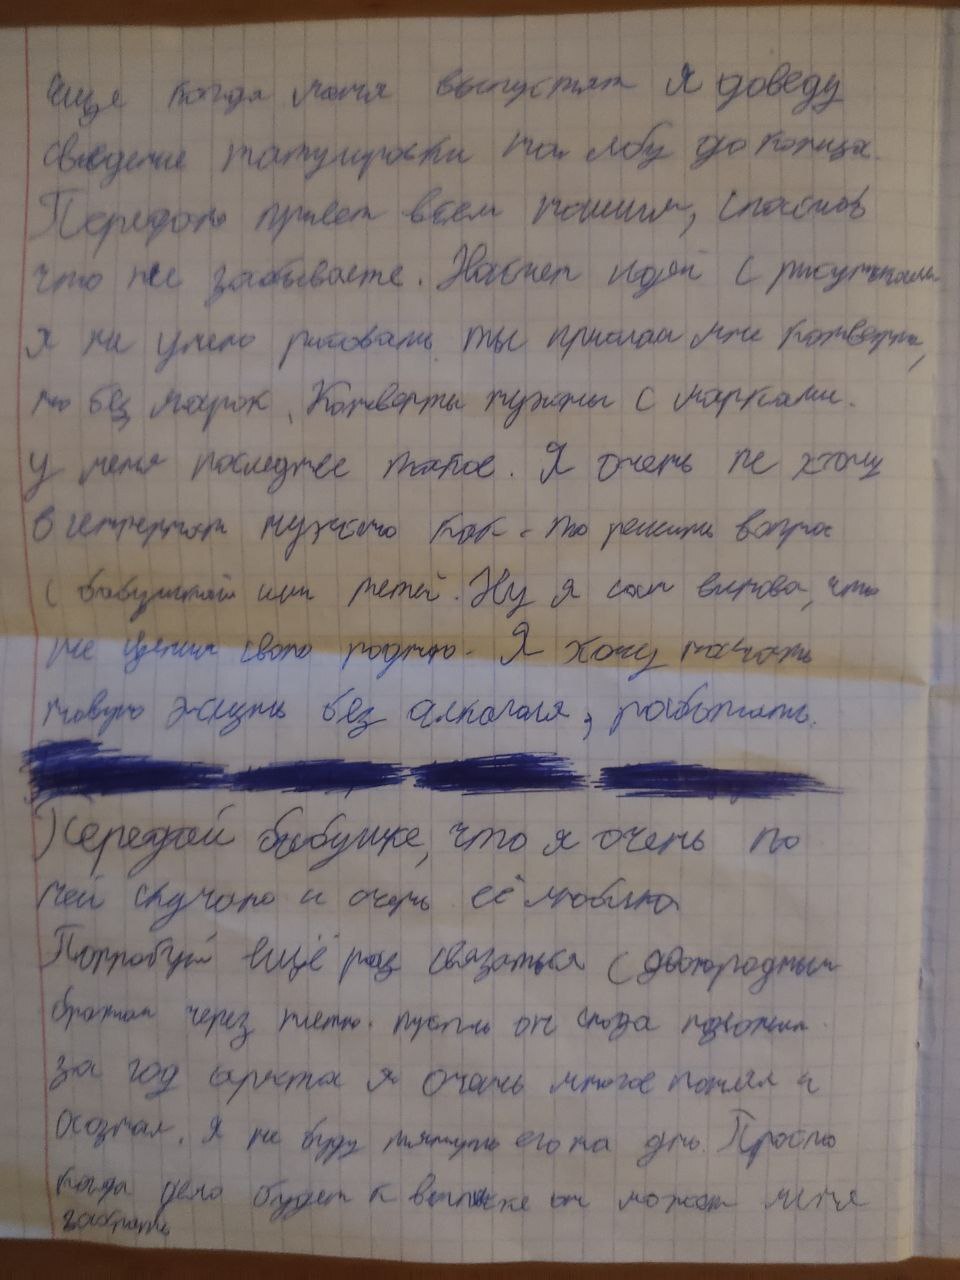 ещё когда меня выпустят я доведу
сведение татуировки на лбу до конца.
Передаю привет всем нашим, спасибо
что не забываете. Насчет идей с рисунками
я не умею рисовать. ты прислал мне конверты,
но без марок. Конверты нужны с марками.
у меня последнее такое. Я очень не хочу
в интернат нужно как-то решить вопрос
с бабушкой или тетей. Ну я сам виноват, что
не ценил свою родню. Я хочу начать
новую жизнь без алкоголя, работать.
Передай бабушке, что я очень по
ней скучаю и очень её люблю
Попробуй ещё раз связаться с двоюродным
братом через тетю. пусть он сюда позвонит.
за год ареста я очень многое понял и
осознал. Я не буду тянуть его на дно. Просто
когда дело будет к выписке он может меня
забрать